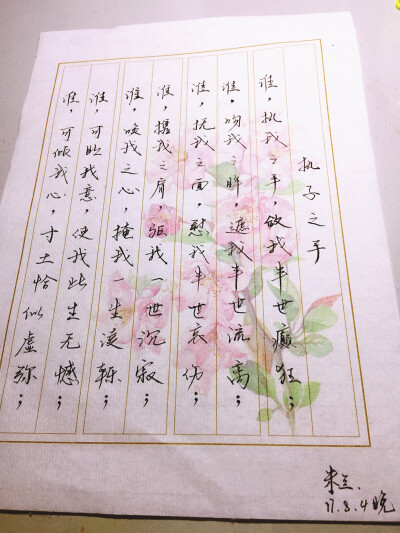 执子之手
谁，执我之手，敛我半世癫狂；
谁，吻我之眸，遮我半世流离；
谁，抚我之面，慰我半世哀伤；
谁，携我之肩，驱我一世沉寂；
谁，唤我之心，掩我一生凌轹；
谁，可明我意，使我此生无憾；
谁，可倾我心，寸土恰似虚弥；
米兰.
17.8.4晚